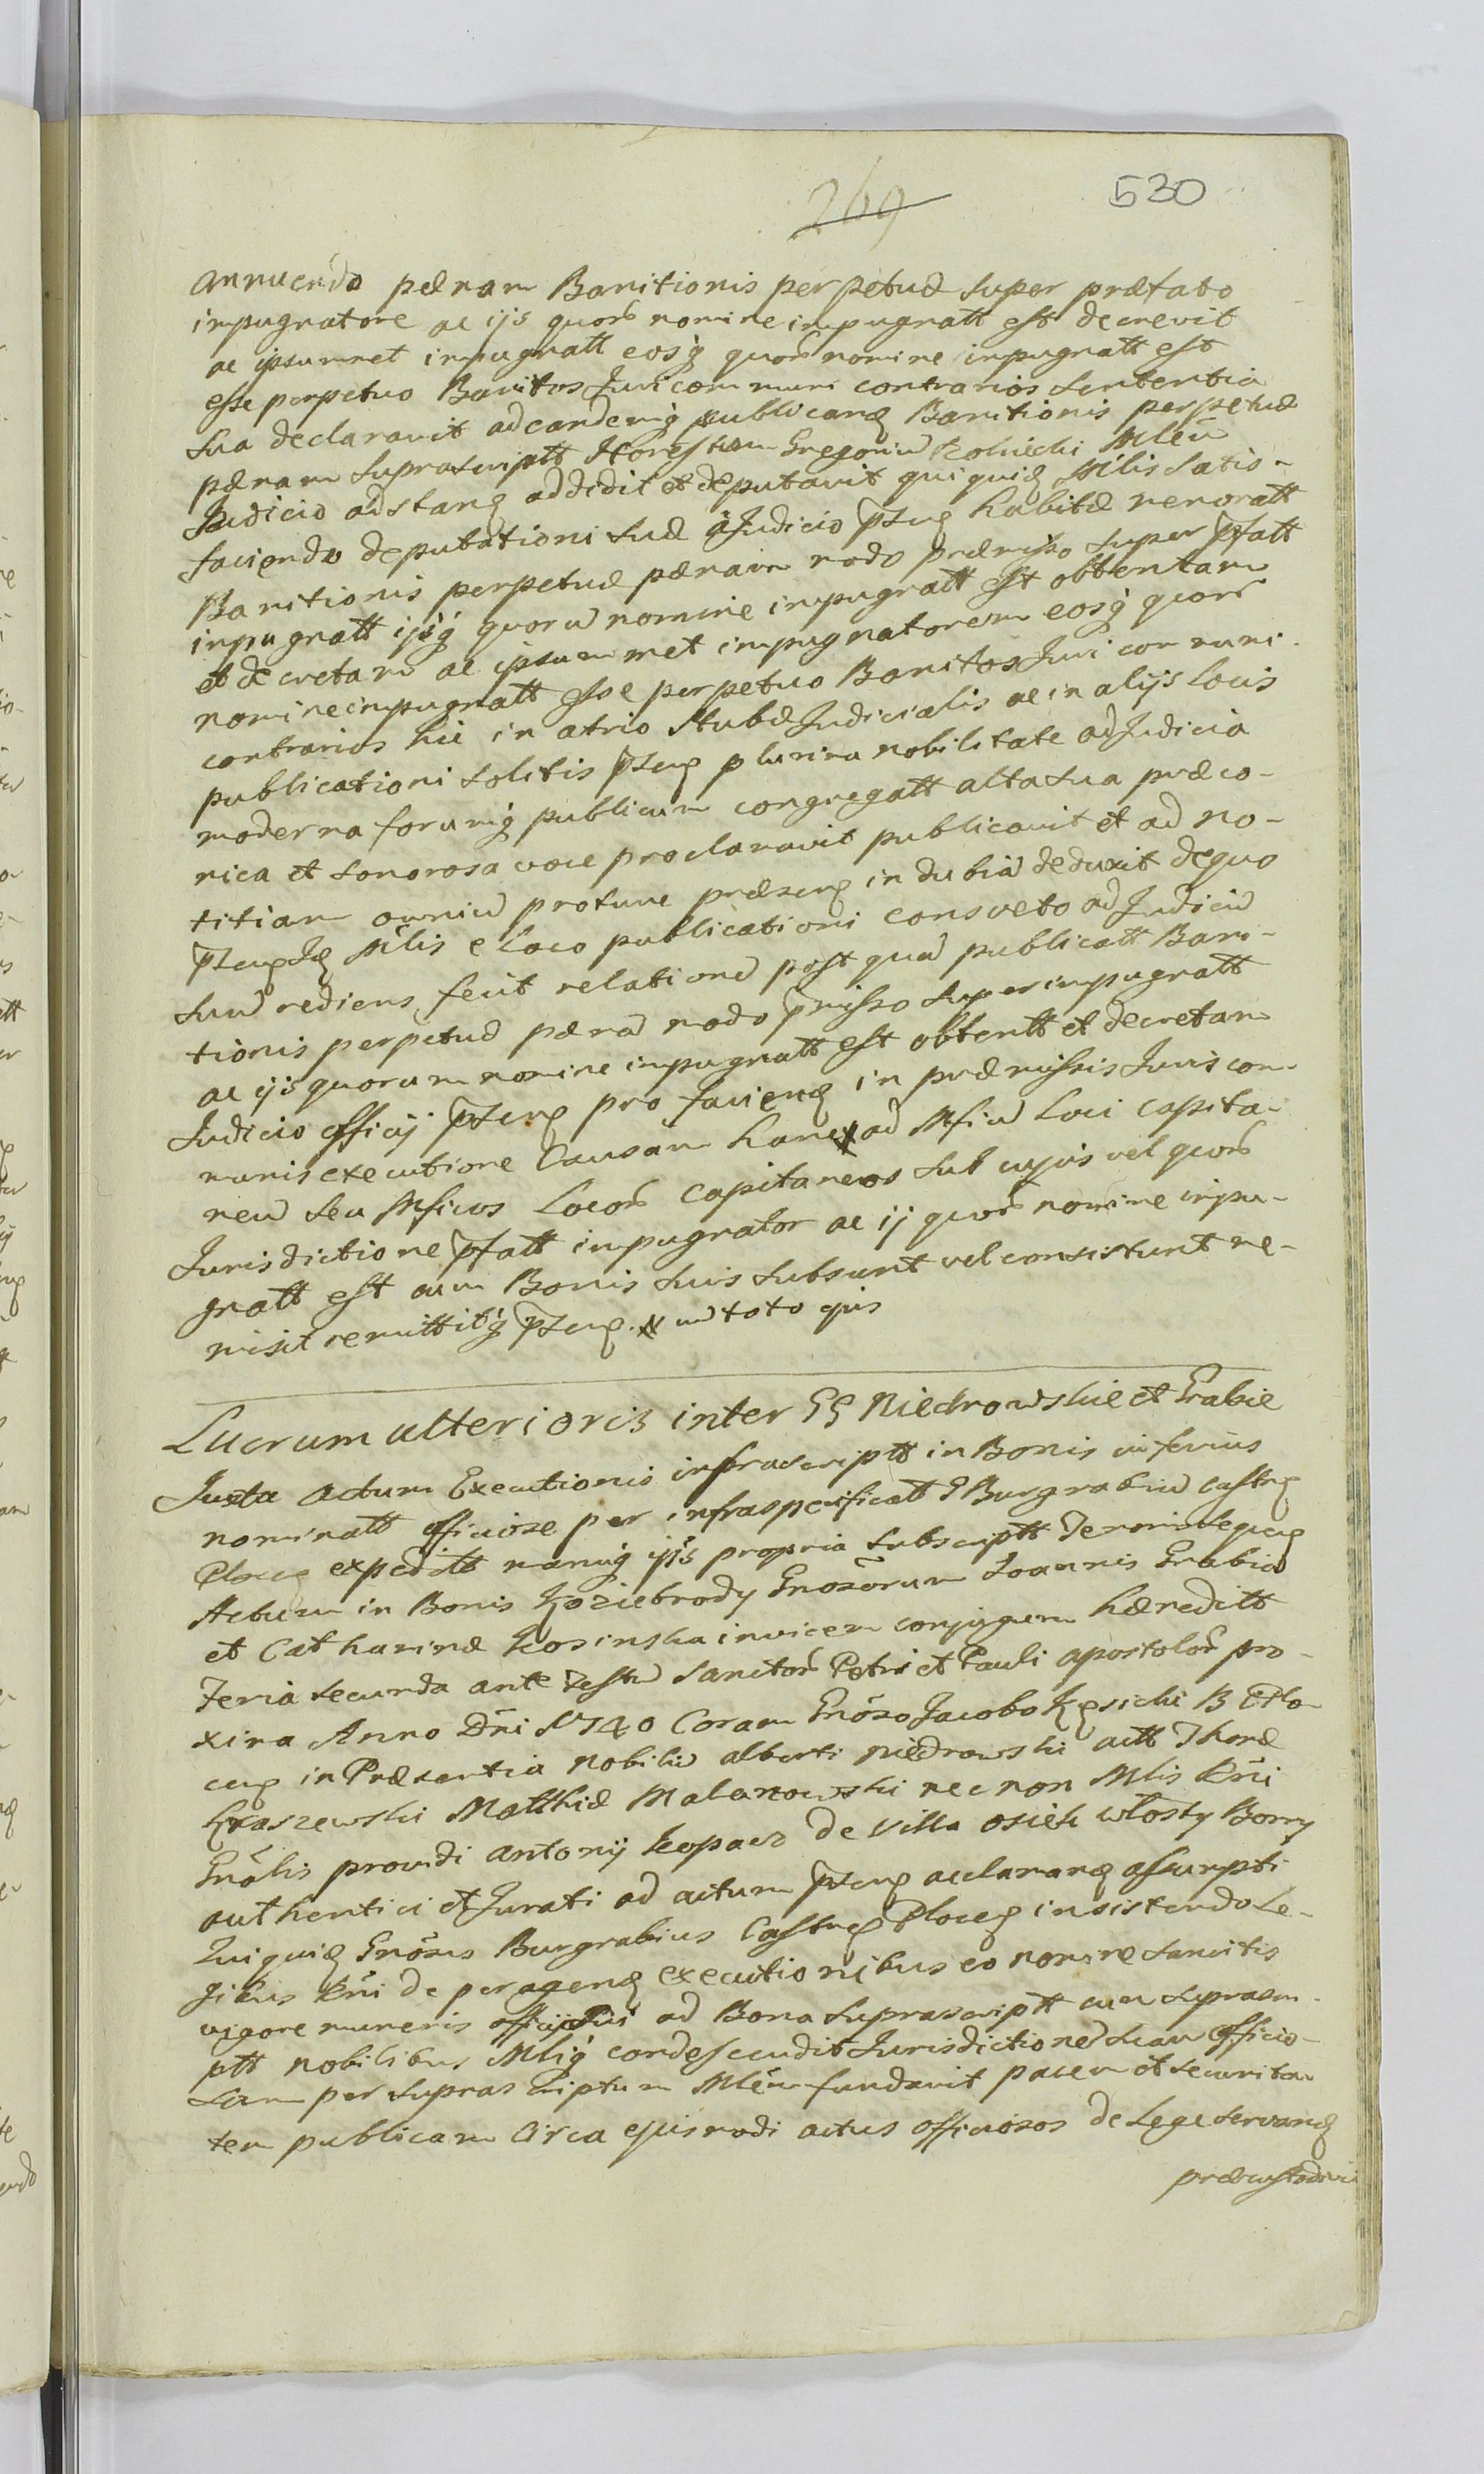 269
530
annuendo pænam Banitionis perpetuæ super præfato
impugnatore ac ijs quorū nomine impugnatt est decrevit
ac ipsummet impugnatt eosq̀ quorū nomine impugnatt est
esse perpetuo Banitos Juri communi contrarios sententia
sua declaravit ad eandemq̀ publicanɖ Banitionis perpetuæ
pænam suprascriptt Honestum Gregoriū Rolnicki Mleū
Judicio adstanɖ addidit et deputavit qui quiɖ Mlis satis-
faciendo deputationi suæ à Judicio pñseɳ habitæ memoratt
Banitionis perpetuæ pænam modo præmisso super pfatt
impugnatt ijsq̀ quorū nomine impugnatt est obtentam
et decretam ac ipsummet impugnatorem eosq̀ quorū
nomine impugnatt esse perpetuo Banitos Juri communi
contrarios hic in atrio stubæ Judicialis ac in alijs locis
publicationi solitis pñseɳ plurima nobilitate ad Judicia
moderna forumq̀ publicum congregatt alta sua præco-
nica et sonorosa voce proclamavit publicavit et ad no-
titiam omniū protunc præseɳ indubiā deduxit de quo
pñseɳ Iɖ Mlis e loco publicationi consveto ad Judiciū
suū rediens fecit relationē post quā publicatt Bani-
tionis perpetuæ pænā modo pmisso super impugnatt
ac ijs quorum nomine impugnatt est obtentt et decretam
Judicio officij pñseɳ pro facienɖ in præmissis Juris com-
munis executione Causam hanc ad Mficū Loci Capita-
neū seu Mficos Locorū Capitaneos sub cujus vel quorū
Jurisdictione pfatt impugnator ac ij quorū nomine impu-
gnatt est cum Bonis suis subsunt vel consistunt re-
misit remittitq̀ pñseɳ. in toto ejus
Lucrum ulterioris inter GG Niedrowskie et Grabie
Juxta actum Executionis infrascriptt in Bonis inferius
nominatt officiose per infraspecificatt G Burgrabiū Castreɳ
Ploceɳ expeditt manuq̀ ijs propria subscriptt Tenoris sequeɳ
Actum in Bonis Koziebrody Gnosorum Joannis Grabia
et Catharinæ Kosinska invicem conjugum hæreditt
Feria secunda ante Festū Sanctorū Petri et Pauli apostolorū pro-
xima Anno Dñi 1740 Coram Gnoso Jacobo Kęsicki B Plo-
ceɳ in Præsentia Nobiliū Alberti Niedrowski actt Thomæ
Kraszewski Matthiæ Malanowski nec non Mlis Rñi
Gnalis providi Antonij Kopacz de villa Osiek włosty Borry
authentici et Jurati ad actum pñseɳ acclamanɖ assumpti
Qui quiɖ Gnosus Burgrabius Castreɳ Ploceɳ insistendo Le-
gibus Rñi de peragenɖ executionibus eo nomine sancitis
vigore muneris officij sui ad Bona suprascriptt cum suprascri-
ptt nobilibus Mliq̀ condescendit Jurisdictionē suam officio-
sam per suprascriptum Mleū fundavit pacem et securita-
tem publicam circa ejusmodi actus officiosos de Lege servanɖ
præcustodivi